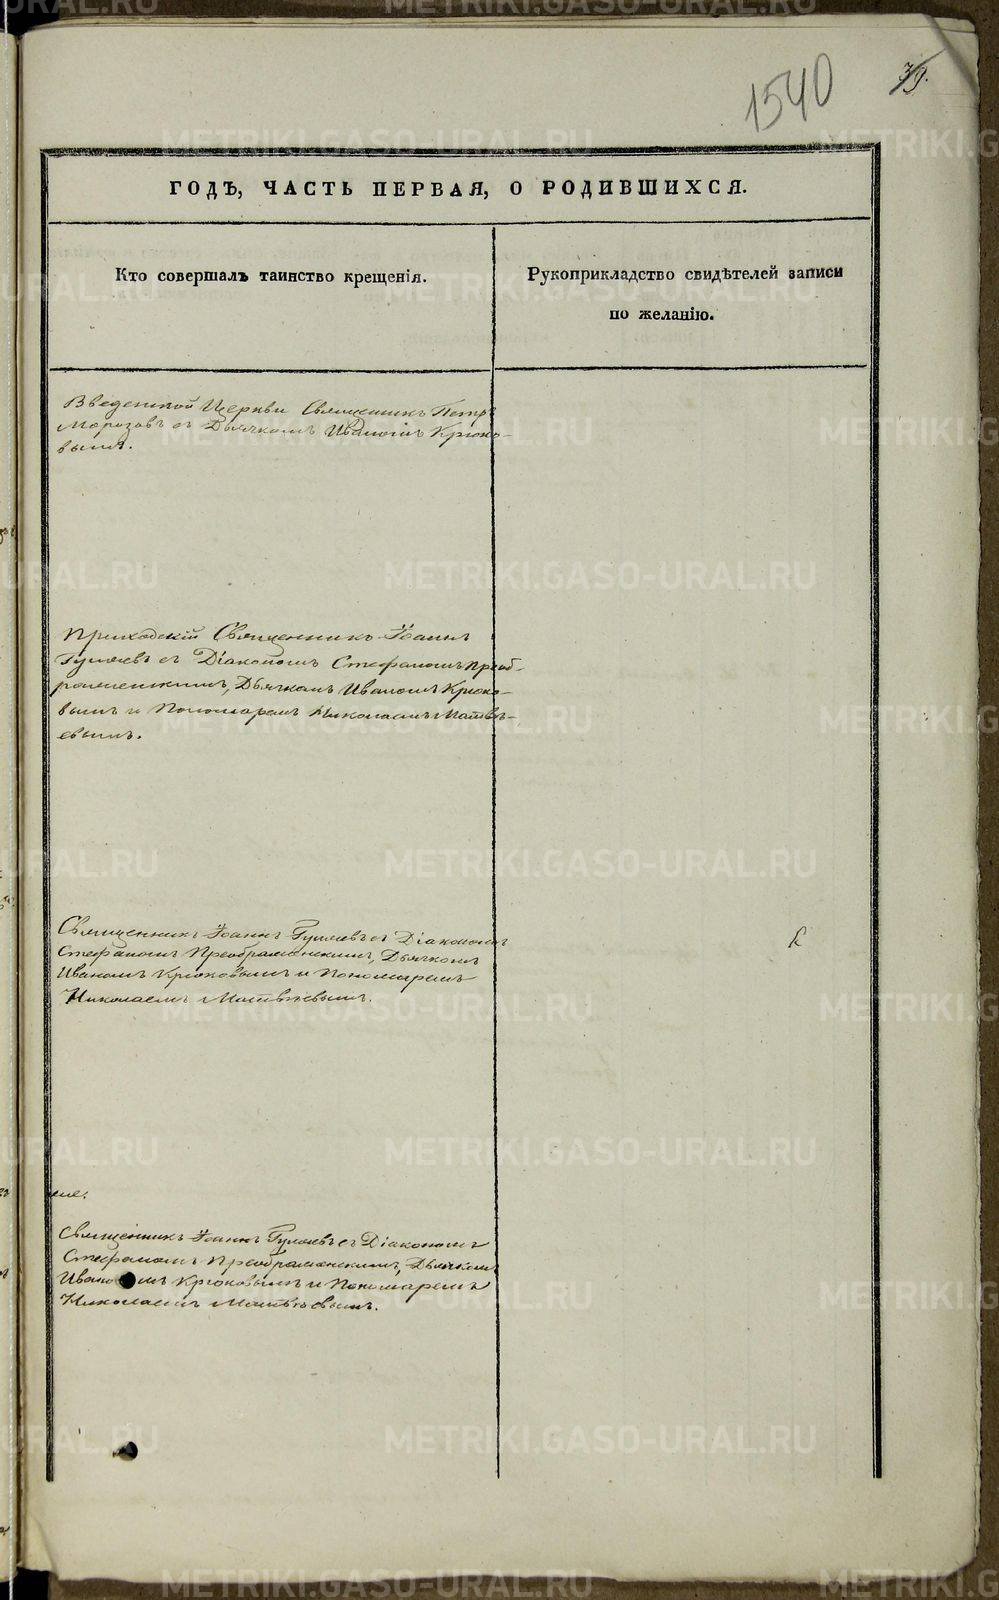 1540
39.
ГОДЪ, ЧАСТЬ ПЕРВАЯ, О РОДИВШИХСЯ.
Кто совершалъ таинство крещенія.
Рукоприкладство свидѣтелей записи
по желанію.
Введенской Церкви Священникъ Петръ
Морозовъ съ Дьячкомъ Иваномъ Крюко-
вымъ.
Приходскій Священникъ Іоаннъ
Гуляевъ съ Діакономъ Стефаномъ Преоб-
раженскимъ, Дьячкомъ Иваномъ Крюко-
вымъ и Пономаремъ Николаемъ Матвѣ-
евымъ.
Священникъ Іоаннъ Гуляевъ съ Діакономъ
Стефаномъ Преображенскимъ, Дьячкомъ
Иваномъ Крюковымъ и Пономаремъ
Николаемъ Матвѣевымъ.
Священникъ Іоаннъ Гуляевъ съ Діакономъ
Стефаномъ Преображенскимъ, Дьячкомъ
Иваномъ Крюковымъ и Пономаремъ
Николаемъ Матвѣевымъ.
METRIKI.GASO-URAL.RU